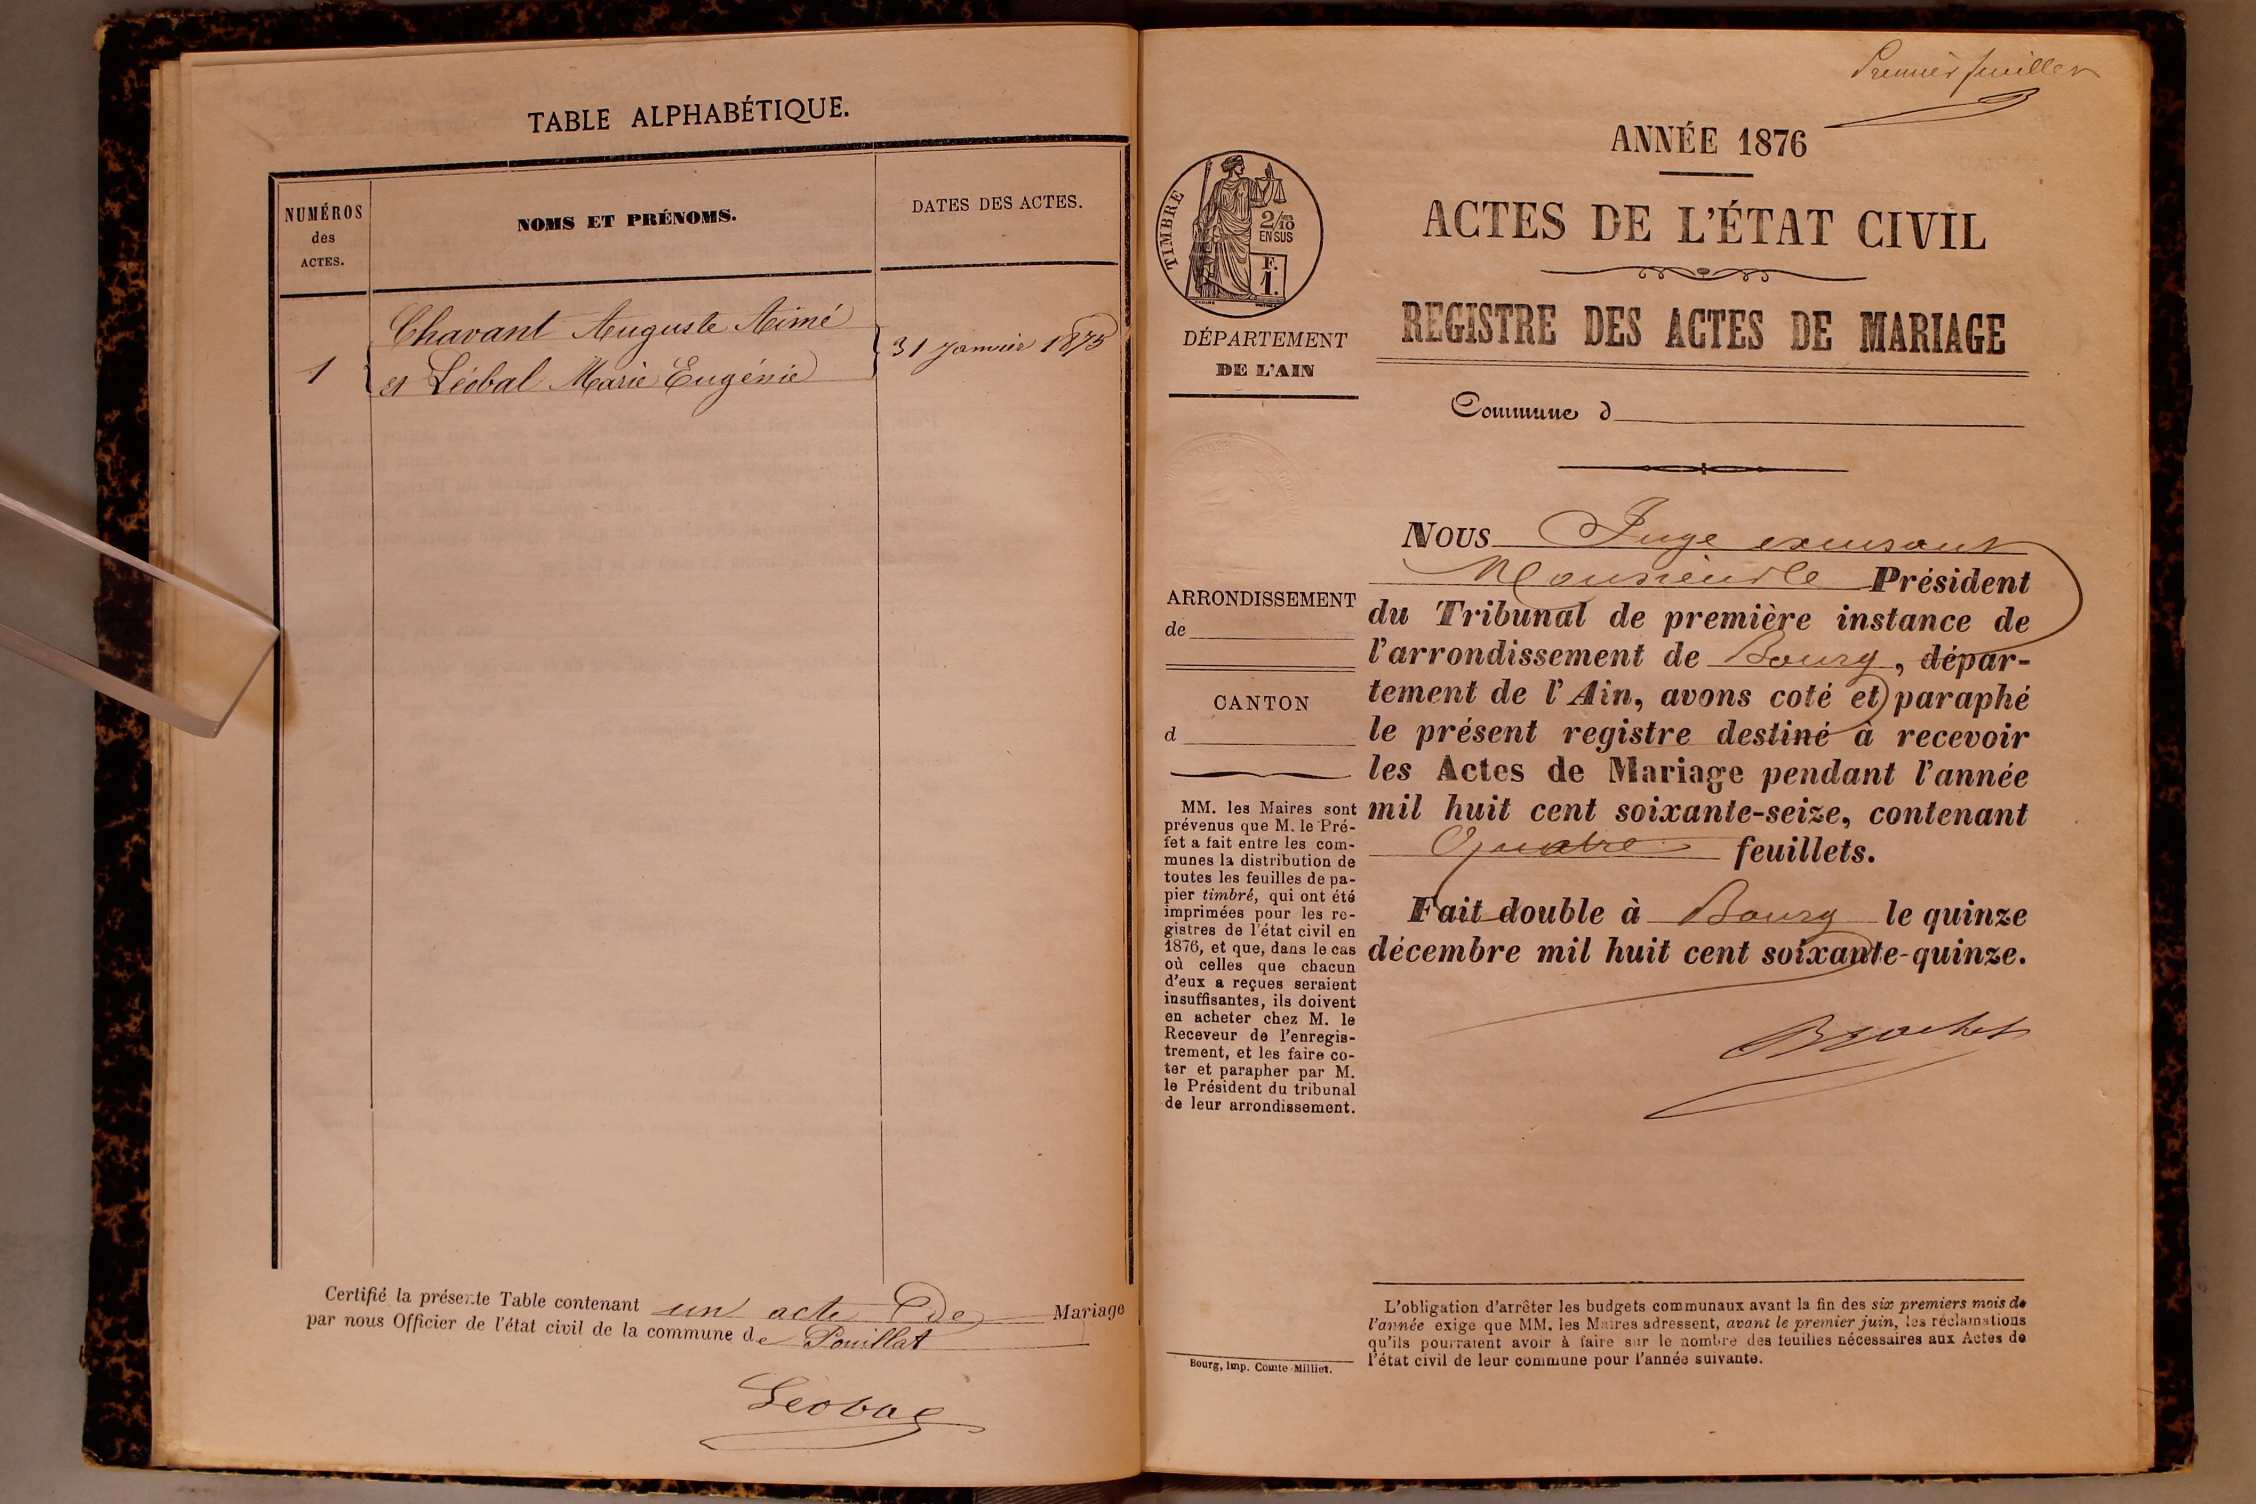 TABLE ALPHABÉTIQUE.
NUMÉROS
des
ACTES.
NOMS ET PRÉNOMS.
DATES DES ACTES.
Chavant Auguste Aimé
1
et Léobal Marie Eugénie
31 janvier 1875
Certifié la présente Table contenant un acte de Mariage
par nous Officier de l'état civil de la commune de Pouillat
Léobal
Premier feuillet
ANNÉE 1876
ACTES DE L'ÉTAT CIVIL
REGISTRE DES ACTES DE MARIAGE
Commune d
TIMBRE
2/10
EN SUS
F.
1.
DÉPARTEMENT
DE L'AIN
ARRONDISSEMENT
de
CANTON
d
MM. les Maires sont
prévenus que M. le Pré-
fet a fait entre les com-
munes la distribution de
toutes les feuilles de pa-
pier timbré, qui ont été
imprimées pour les re-
gistres de l'état civil en
1876, et que, dans le cas
où celles que chacun
d'eux a reçues seraient
insuffisantes, ils doivent
en acheter chez M. le
Receveur de l'enregis-
trement, et les faire co-
ter et parapher par M.
le Président du tribunal
de leur arrondissement.
Bourg, Imp. Comte-Milliet.
NOUS Juge
Monsieur le Président
du Tribunal de première instance de
l'arrondissement de Bourg, dépar-
tement de l'Ain, avons coté et paraphé
le présent registre destiné à recevoir
les Actes de Mariage pendant l'année
mil huit cent soixante-seize, contenant
Quatre feuillets.
Fait double à Bourg le quinze
décembre mil huit cent soixante-quinze.
L'obligation d'arrêter les budgets communaux avant la fin des six premiers mois de
l'année exige que MM. les Maires adressent, avant le premier juin, les réclamations
qu'ils pourraient avoir à faire sur le nombre des feuilles nécessaires aux Actes de
l'état civil de leur commune pour l'année suivante.